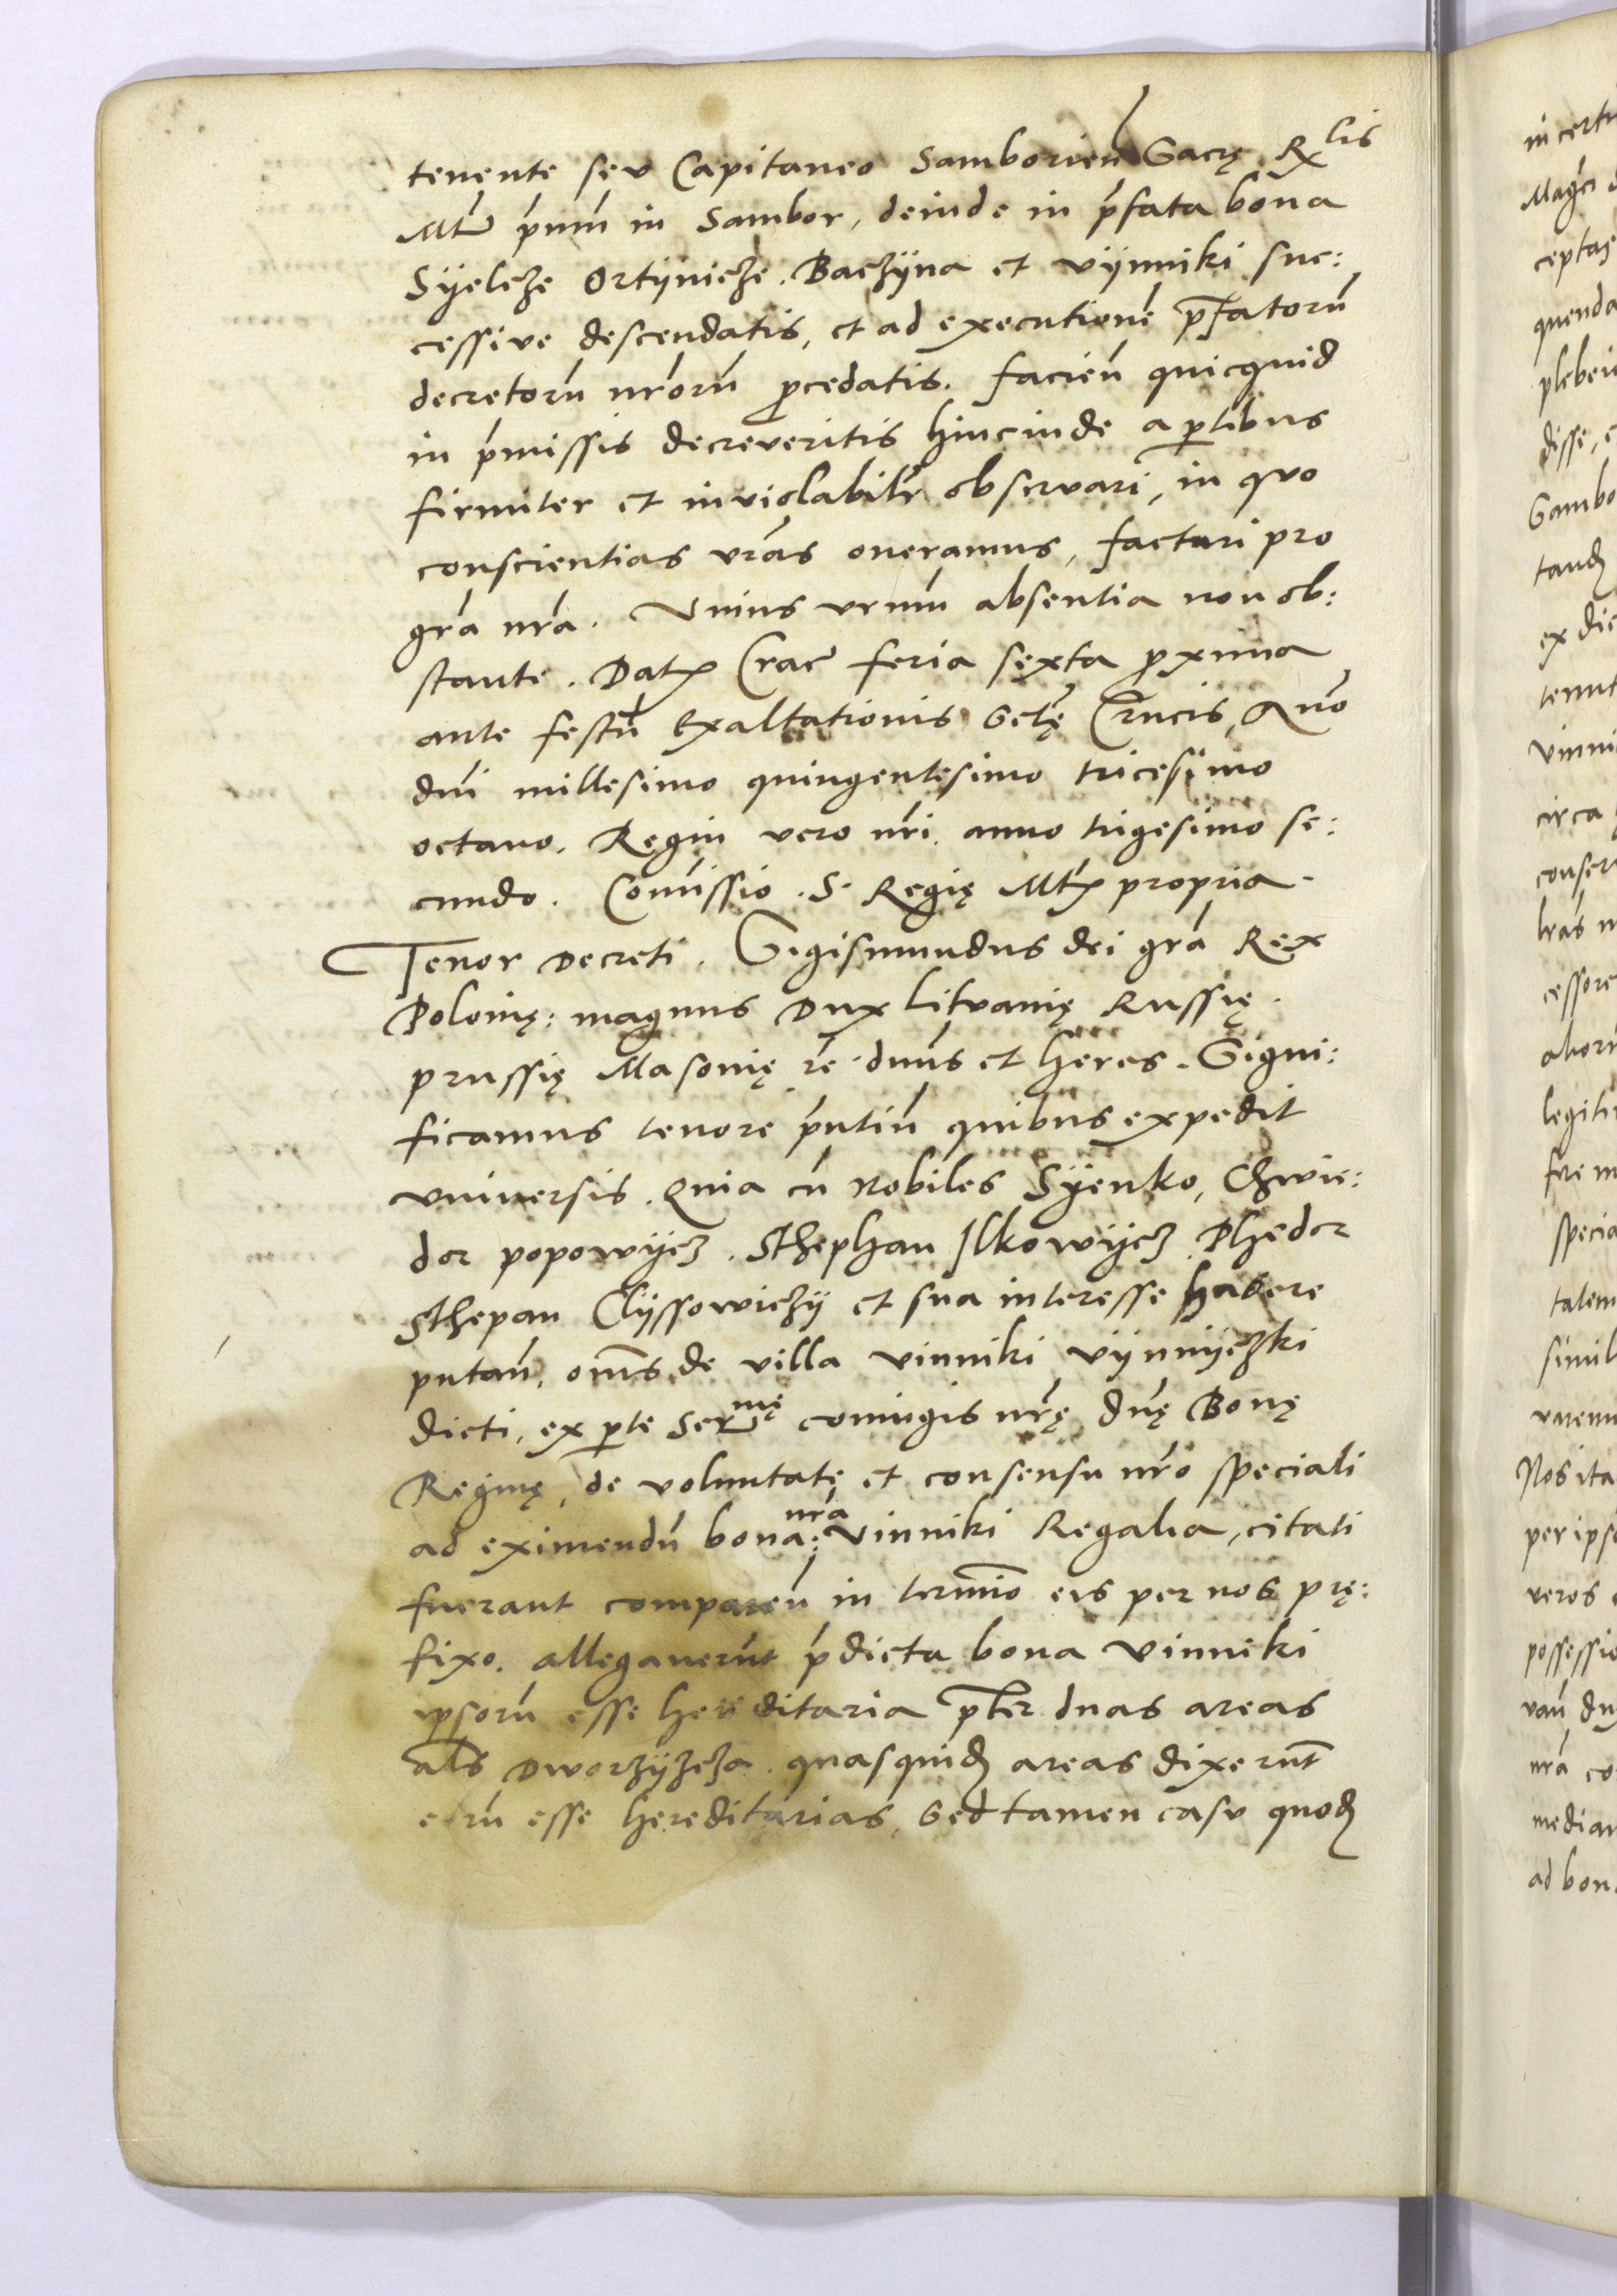 tenente seu Capitaneo Samborien̄ Sacrę Rlis
Mtis p̄mum in Sambor, deinde in p̄fata bona
Syelcze Ortynicze. Baczyna et Vynniki suc:
cessive descendatis, et ad executionē p̄fatorū
decretorū nr̄orū p̄cedatis. facien̄ quicquid
in p̄missis decreveritis hincinde a ptibus
firmiter et inviolabilr̄ observari, in quo
conscientias vr̄as oneramus, facturi pro
gr̄a nr̄a. Unius vrum absentia non ob:
stante. Dat Crac̄ feria sexta proxima
ante festū Exaltationis Sctę Crucis, Anō
dnī millesimo quingentesimo tricesimo
octavo. Regni vero nr̄i anno trigesimo se:
cundo. Comīssio. S. Regię Mtis propria.
Tenor Decreti. Sigismundus dei gr̄a Rex
Polonię: magnus Dux Litvanię Russię.
prussię Masovię rē. dnūs et heres. Signi:
ficamus tenore pn̄tiū quibus expedit
universis. Quia cū Nobiles Syenko, Chwie:
dor popowycz. Sthephan Ilkowycz Phedor
Sthepan Clyssowiczy et sua interesse habere
putan̄. om̄s de villa Vinniki Vynnyczki
dicti, ex pte Sermę coniugis nr̄ę dn̄ę Bonę
Reginę, de voluntate et consensu nr̄o speciali
ad eximendū bona nr̄a: Vinniki Regalia, citati
fuerant comparen̄ in termīo eis per nos prę:
fixo. allegaverūt p̄dicta bona Vinniki
ipsorū esse hereditaria p̄ter duas areas
als̄ Dworzyzcza. quasquid areas dixerūt
eorū esse hereditarias, Sed tamen casu quod